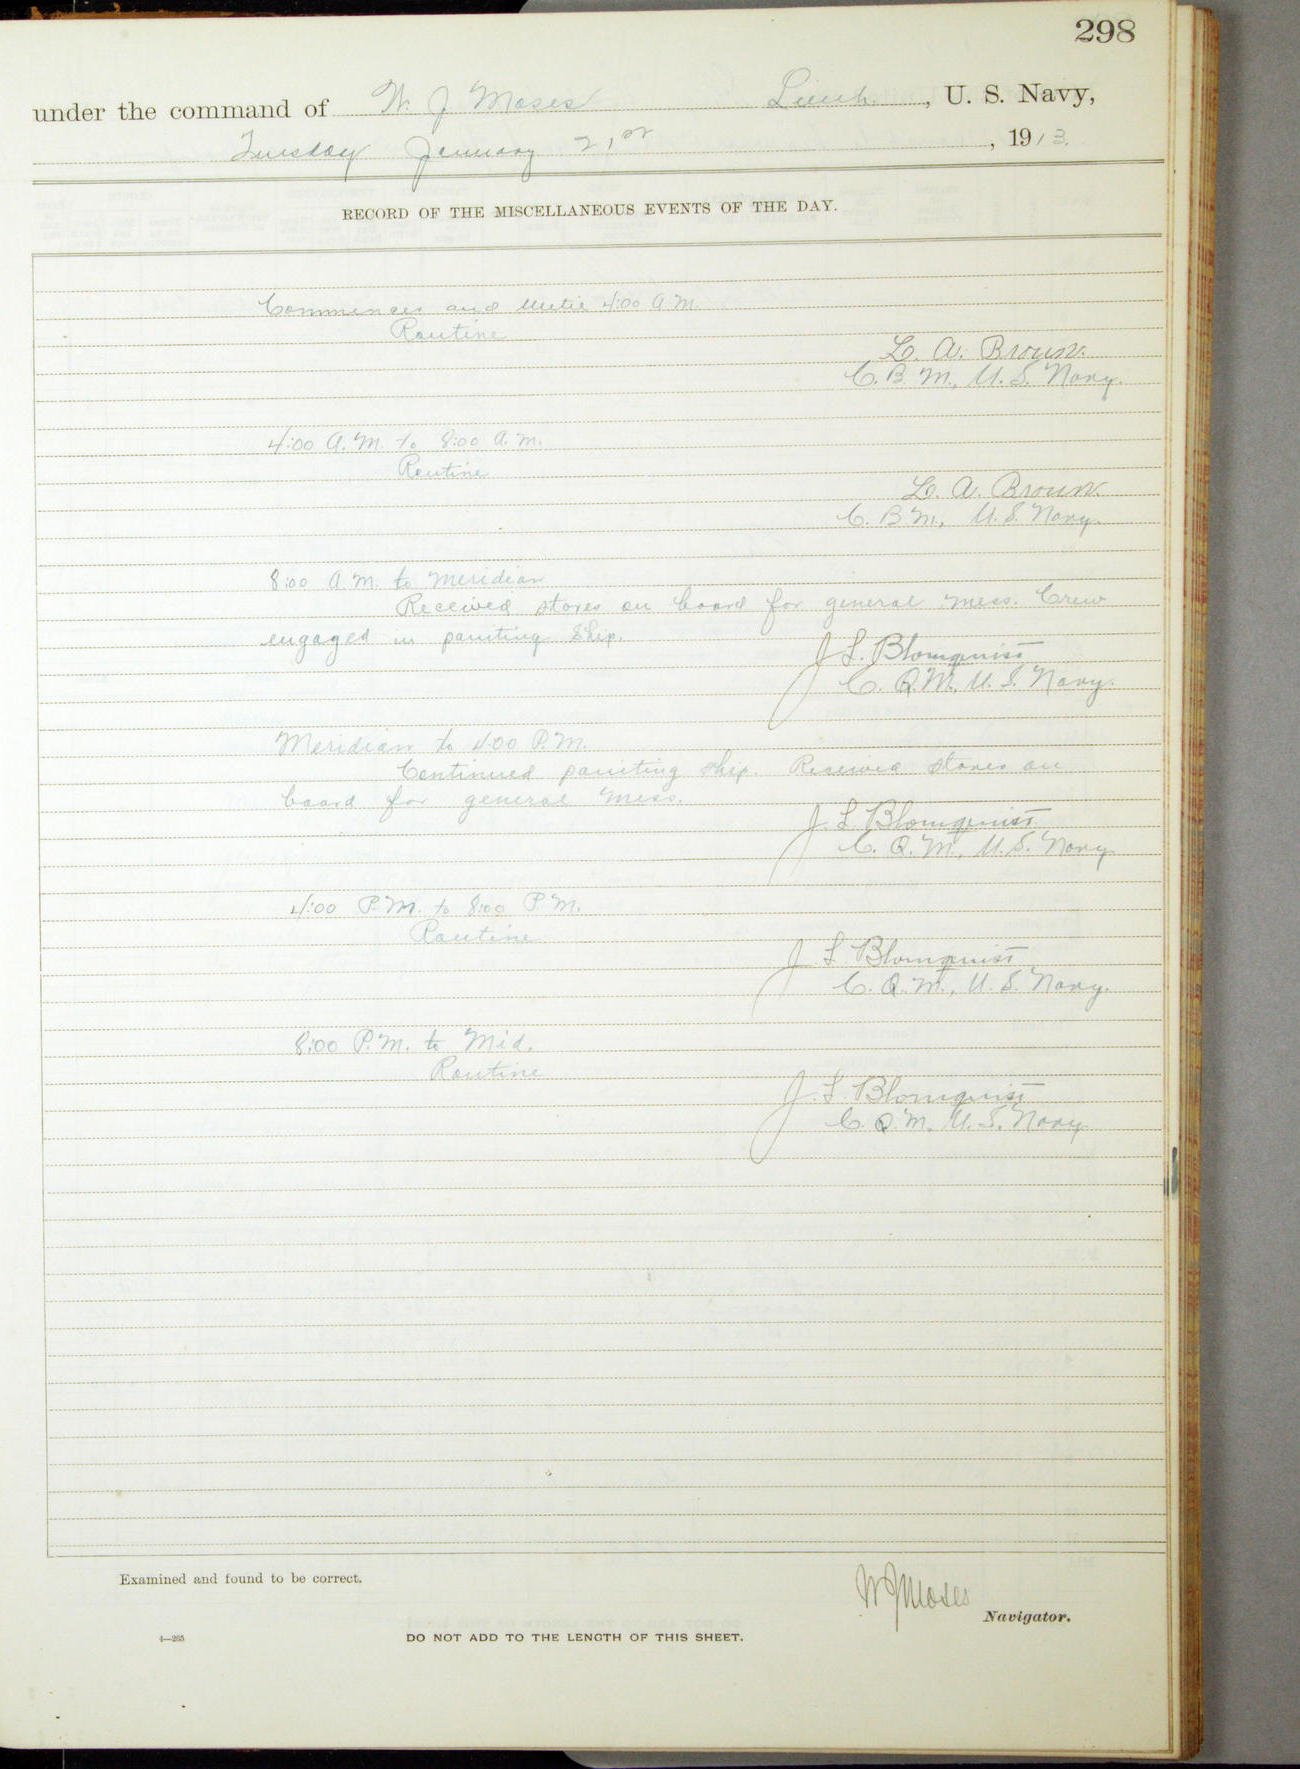 298
under the command of W. J. Moses Lieut., U. S. Navy,
Tuesday January 21st, 1913.
RECORD OF THE MISCELLANEOUS EVENTS OF THE DAY.
Commences and until 4:00 A.M.
Routine
L. A. Brown.
C. B. M., U. S. Navy.
4:00 A.M. to 8:00 A.M.
Routine
L. A. Brown.
C. B. M., U. S. Navy.
8:00 A.M. to Meridian
Received stores on board for general mess. Crew
engaged in painting ship.
J. L. Blomquist
C. Q. M., U. S. Navy.
Meridian to 4:00 P.M.
Continued painting ship. Received stores on
board for general mess.
J. L. Blomquist
C. Q. M., U. S. Navy
4:00 P.M. to 8:00 P.M.
Routine
J. L. Blomquist
C. Q. M., U. S. Navy.
8:00 P.M. to Mid.
Routine
J. L. Blomquist
C. Q. M., U. S. Navy
Examined and found to be correct.
W J Moses
Navigator.
4—265
DO NOT ADD TO THE LENGTH OF THIS SHEET.